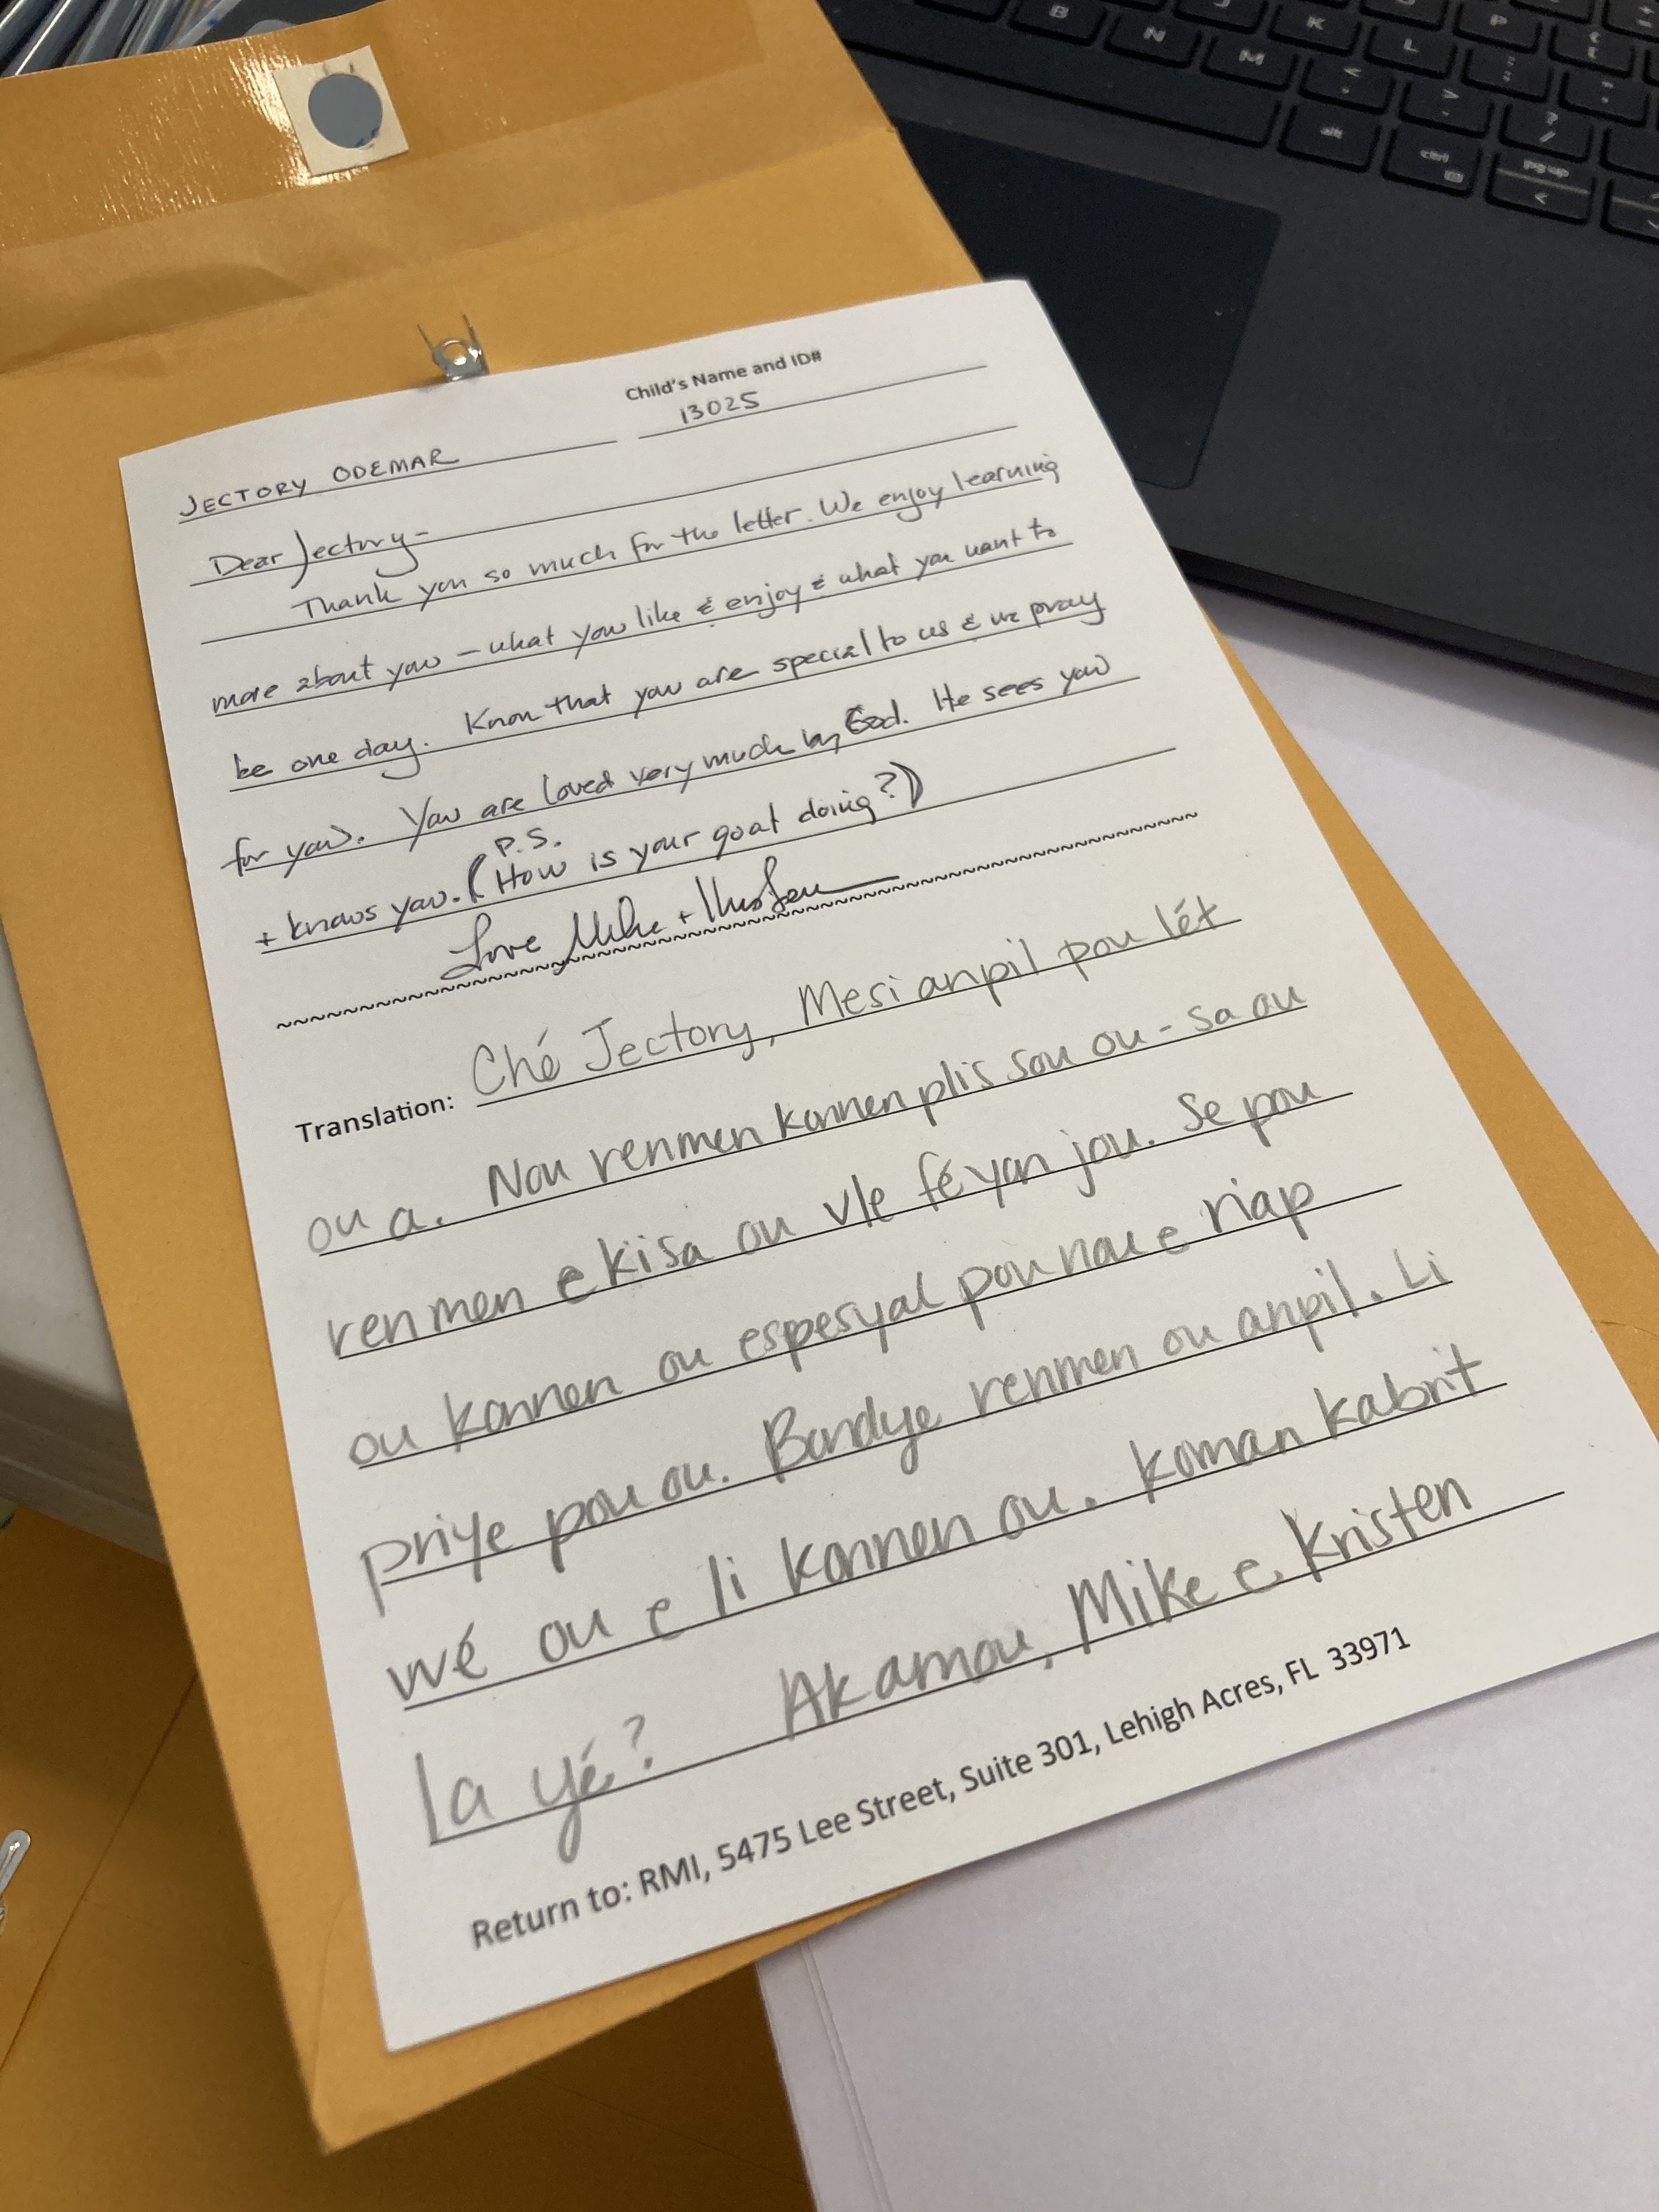 B N M J K L P
alt ctrl pg up
Child's Name and ID#
JECTORY ODEMAR 13025
Dear Jectory-
Thank you so much for the letter. We enjoy learning
more about you – what you like & enjoy & what you want to
be one day. Know that you are special to us & we pray
for you. You are loved very much by God. He sees you
P.S.
+ knows you. (How is your goat doing?)
Love Mike + Kristen
Translation: Ché Jectory, Mesi anpil pou lét
ou a. Nou renmen konnen plis sou ou - sa ou
renmen e kisa ou vle fé yon jou. Se pou
ou konnen ou espesyal pou nou e nap
priye pou ou. Bondye renmen ou anpil. Li
wé ou e li konnen ou. Koman kabrit
la yé? Ak amou, Mike e Kristen
Return to: RMI, 5475 Lee Street, Suite 301, Lehigh Acres, FL 33971